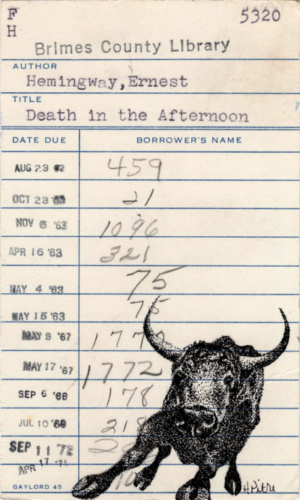 F 5320
H
Brimes County Library
AUTHOR
Hemingway,Ernest
TITLE
Death in the Afternoon
DATE DUE BORROWER'S NAME
AUG 23 459
OCT 23 21
NOV 6 '63 1096
APR 16 '63 321
MAY 4 '63 75
MAY 15 '63 75
MAY 9 '67
MAY 17 '67 1772
SEP 6 178
JUL 10 218
SEP 11
APR 17 '71
GAYLORD 45